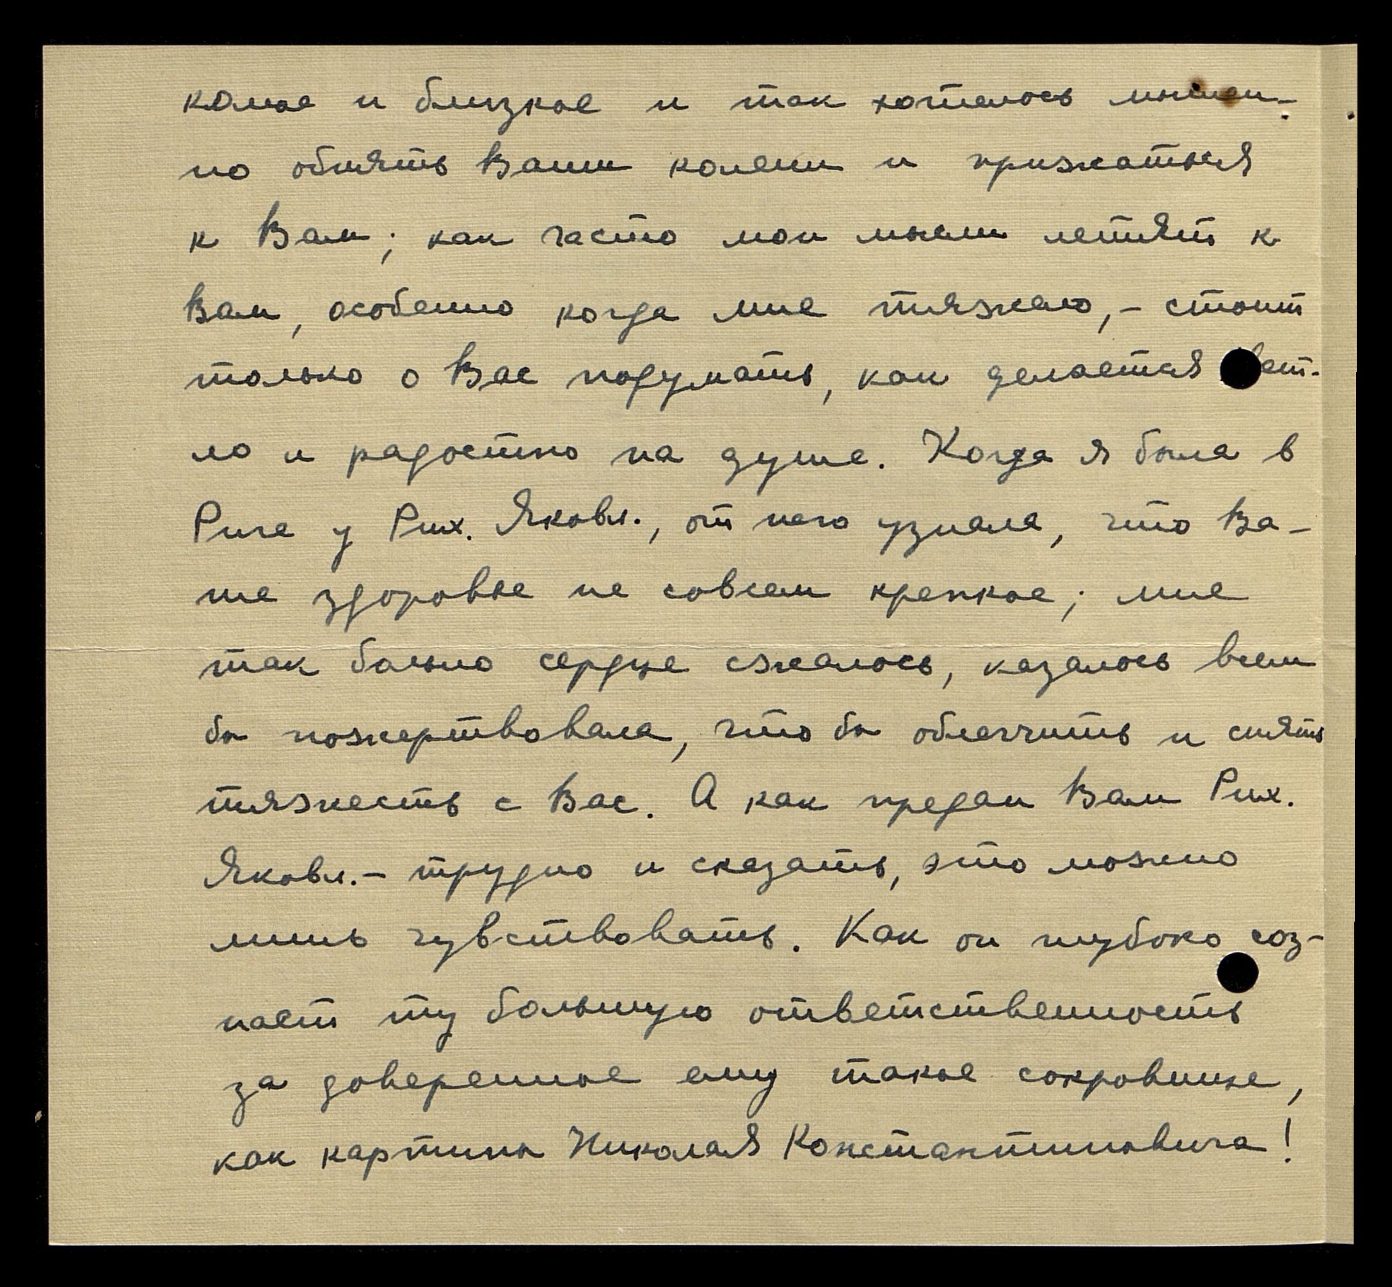 комое и близкое и так хотелось мыслен-
но обнять Ваши колени и прижаться
к Вам; как часто мои мысли летят к
Вам, особенно когда мне тяжело, – стоит
только о Вас подумать, как делается свет-
ло и радостно на душе. Когда я была в
Риге у Рих. Яковл., от него узнала, что Ва-
ше здоровье не совсем крепкое; мне
так больно сердце сжалось, казалось всем
бы пожертвовала, что бы облегчить и снять
тяжесть с Вас. А как предан Вам Рих.
Яковл. – трудно и сказать, это можно
лишь чувствовать. Как он глубоко соз-
нает ту большую ответственность
за доверенное ему такое сокровище,
как картины Николая Константиновича!